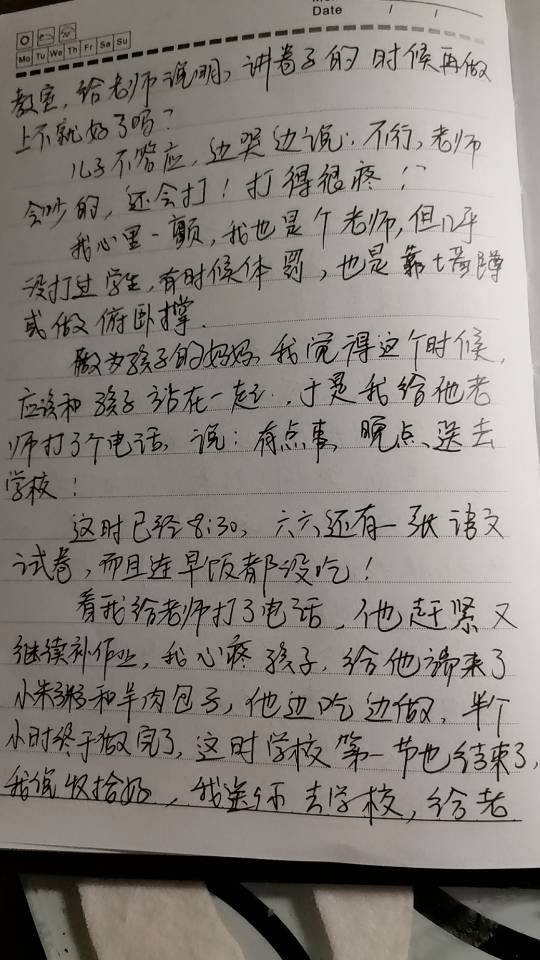 Date / /
Mo Tu We Th Fr Sa Su
教室,给老师说明,讲卷子的时候再做
上不就好了吗?
儿子不答应,边哭边说:不行,老师
会吵的,还会打!打得很疼!
我心里一颤,我也是个老师,但几乎
没打过学生,有时候体罚,也是靠墙蹲
或做俯卧撑.
做为孩子的妈妈,我觉得这个时候,
应该和孩子站在一起,于是我给他老
师打了个电话,说:有点事,晚点送去
学校!
这时已经8:30,六六还有一张语文
试卷,而且连早饭都没吃!
看我给老师打了电话,他赶紧又
继续补作业,我心疼孩子,给他端来了
小米粥和羊肉包子,他边吃边做,半个
小时终于做完了,这时学校第一节也结束了,
我说收拾好,我送你去学校,给老